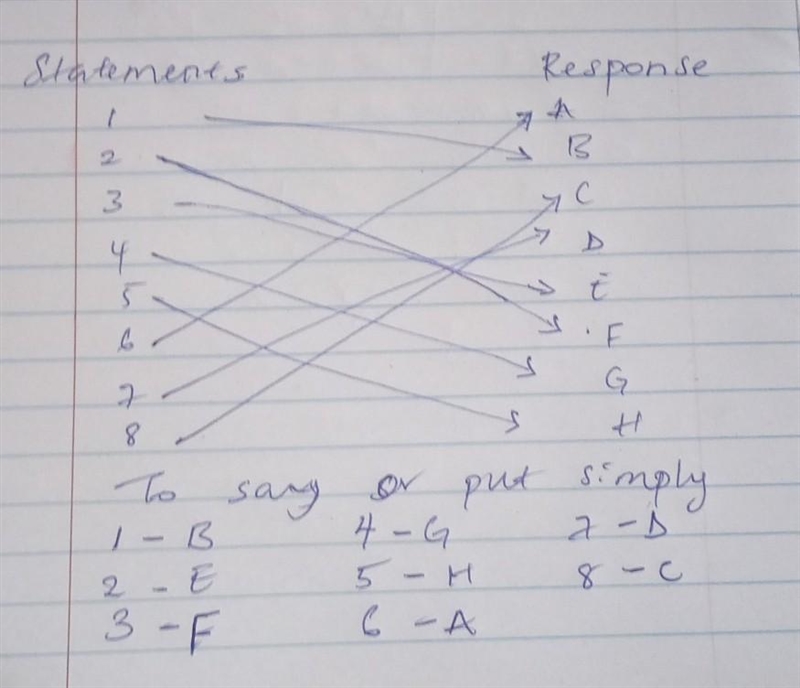 Statements Response
1 A
2 B
3 C
4 D
5 E
6 F
7 G
8 H
To sang or put simply
1 - B 4 - G 7 - D
2 - E 5 - H 8 - C
3 - F 6 - A